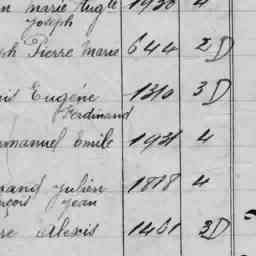 n Marie Aug 1930 4
Joseph
ph Pierre Marie 644 2 D
is Eugène 1310 3 D
Ferdinand
mmanuel Emile 1931 4
rand Julien 1818 4
nçois Jean
re Alexis 1461 3 D